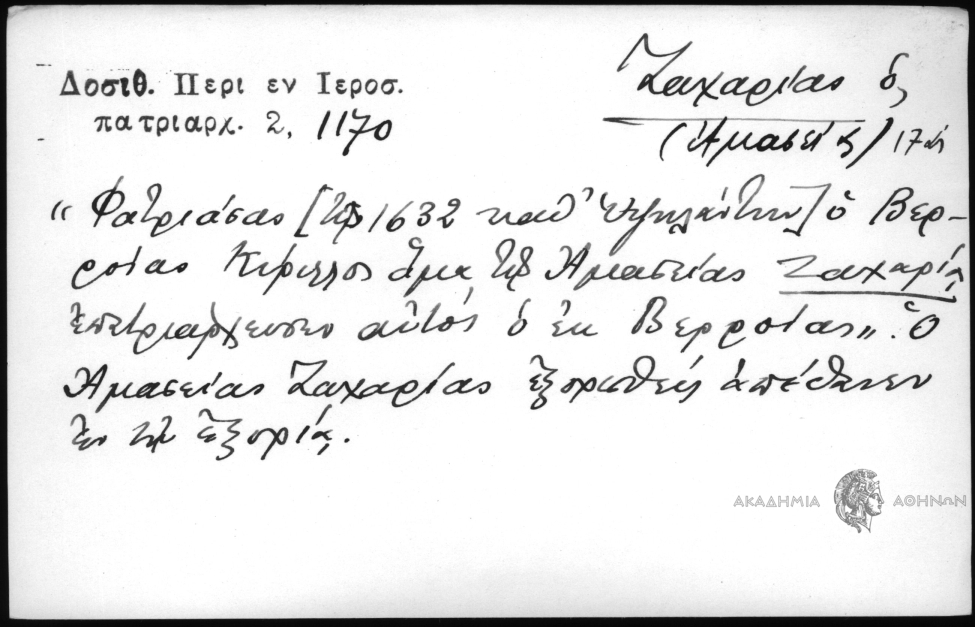 Δοσιθ. Περι εν Ιεροσ.
πατριαρχ. 2, 1170
Ζαχαρίας ὁ
(Ἀμασείας) 17 αἰ
« Φατριάσας [τῷ 1632 καθ' Ὑψηλάντην] ὁ Βερ-
ροίας Κύριλλος ἅμα τῷ Ἀμασείας Ζαχαρίᾳ
ἐπετριάρχευσεν αὐτός ὁ ἐκ Βερροίας». Ὁ
Ἀμασείας Ζαχαρίας ἐξορισθείς ἀπέθανεν
ἐν τῇ ἐξορίᾳ.
ΑΚΑΔΗΜΙΑ ΑΘΗΝΩΝ